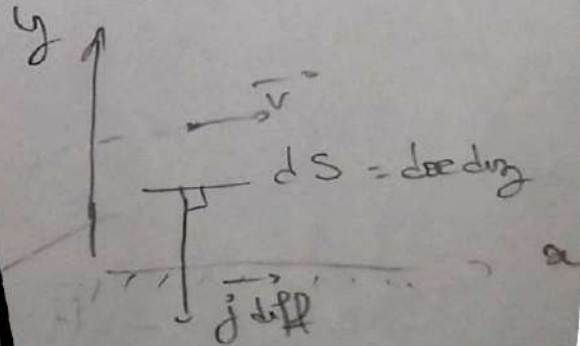 y
v
dS = dx dz
x
j diff